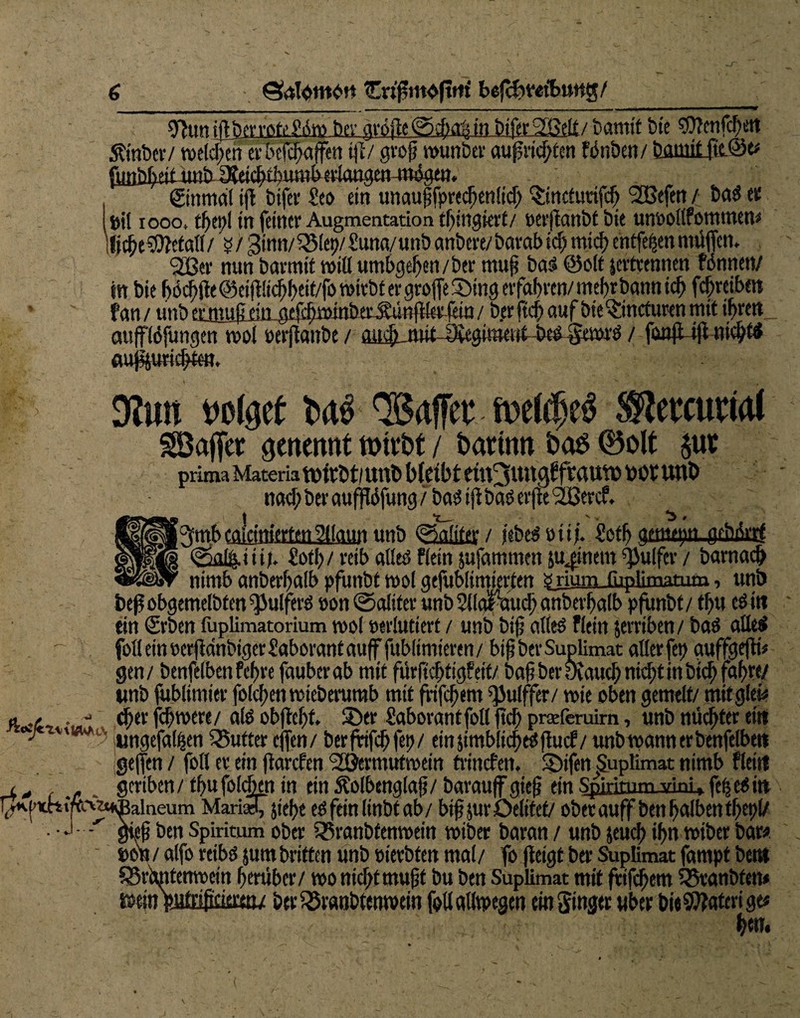 6 Salomon Trißmosini beschreibung/
Nun ist der rote Löw der gröste Schatz in diser Welt/ damit die Menschen
Kinder/ welchen er beschaffen ist/ groß wunder außrichten könden/ damit sie Ge⸗
sundheit und Reichthumb erlangen mögen.
Einmal ist diser Leo ein unaußsprechenlich Tincturisch Wesen/ das er
vil 1000. theyl in seiner Augmentation thingiert/ verstandt die unvollkommen⸗
liche Metall/ ☿/ Zinn/ Bley/ Luna/ und andere/ darab ich mich entsetzen müssen.
Wer nun darmit will umbgehen/ der muß das Golt zertrennen können/
in die höchste Geistlichheit/ so wirdt er grosse Ding erfahren/ mehr dann ich schreiben
kan/ und er muß ein geschwinder Künstler sein/ der sich auf die Tincturen mit ihren
aufflösungen wol verstande/ auch mit Regiment des Fewrs/ sonst ist nichts
außzurichten.
Nun volget das Wasser welches Mercurial
Wasser genennt wirdt/ darinn das Golt zur
prima Materia wirdt/ und bleibt ein Jungkfrauw vor und
nach der aufflösung/ das ist das erste Werck.
Nimb calcinierten Allaun und Saliter/ jedes viij. Loth gemeyn gedörrt
Saltz. iiij. Loth/ reib alles klein zusammen zu einem Pulfer/ darnach
nimb anderhalb pfundt wol gesublimierten ☿rium suplimatum, und
deß obgemeldten Pulfers von Saliter und Allaf auch anderhalb pfundt/ thu es in
ein Erden suplimatorium wol verlutiert/ und biß alles klein zerriben/ das alles
soll ein verständiger Laborant auff sublimieren/ biß der Suplimat aller sey auffgesti⸗
gen/ denselben kehre sauber ab mit fürsichtigkeit/ daß der Rauch nicht in dich fahre/
und sublimier solchen wiederumb mit frischem Pulffer/ wie oben gemelt/ mit glei⸗
cher schwere/ als obsteht. Der Laborant soll sich præseruirn, und nüchter ein
ungesaltzen Butter essen/ der frisch sey/ ein zimbliches stuck/ und wann er denselben
gessen/ soll er ein starcken Wermutwein trincken. Disen Suplimat nimb klein
geriben/ thu solchen in ein Kolbenglaß/ darauff gieß ein Spiritum vini, setz es in
Balneum Mariæ, ziehe es fein lindt ab/ biß zur Oelitet/ oder auff den halben theyl/
gieß den Spiritum oder Brandtenwein wider daran/ und zeuch ihn wider dar⸗
von/ also reibs zum dritten und vierdten mal/ so steigt der Suplimat sampt dem
Brantenwein herüber/ wo nicht must du den Suplimat mit frischem Brandten⸗
wein putrificieren/ der Brandtenwein soll allwegen ein Finger uber die Materi ge⸗
hen.